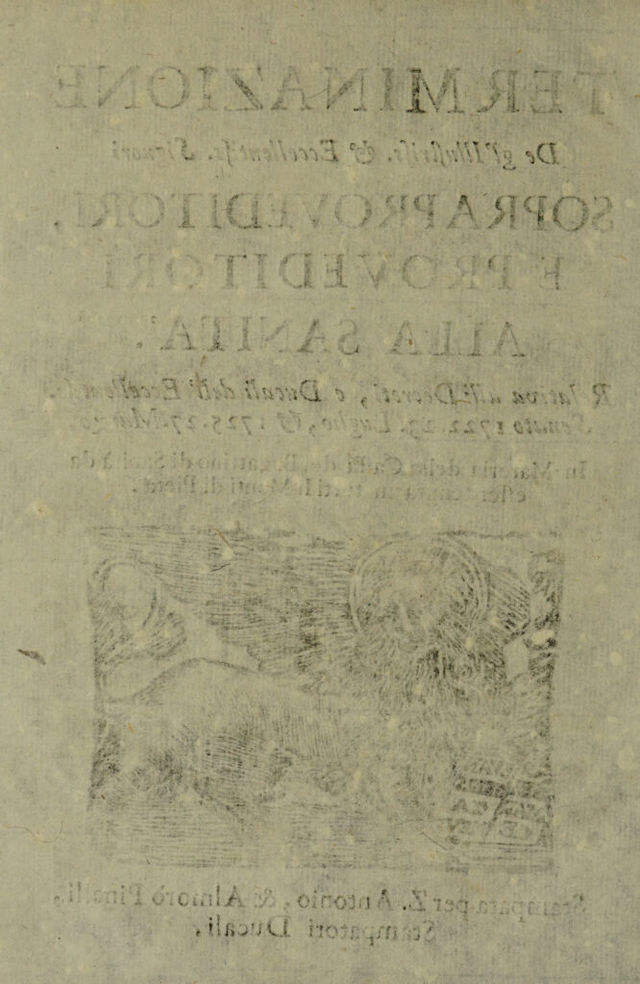 TERMINAZIONE
De gl'Illustriss. & Eccellentiss. Signori
SOPRAPROVEDITORI,
E PROVEDITORI
ALLA SANITA'.
Relativa alli Decreti, e Ducali dell' Eccellentiss.
Senato 1722. 23. Luglio, & 1725. 27. Marzo
In Materia delle Cassi del Bagattino di Sanità da
esser tenuta in tutti li Monti di Pietà.
Stampata per Z. Antonio, & Almorò Pinelli,
Stampatori Ducali.